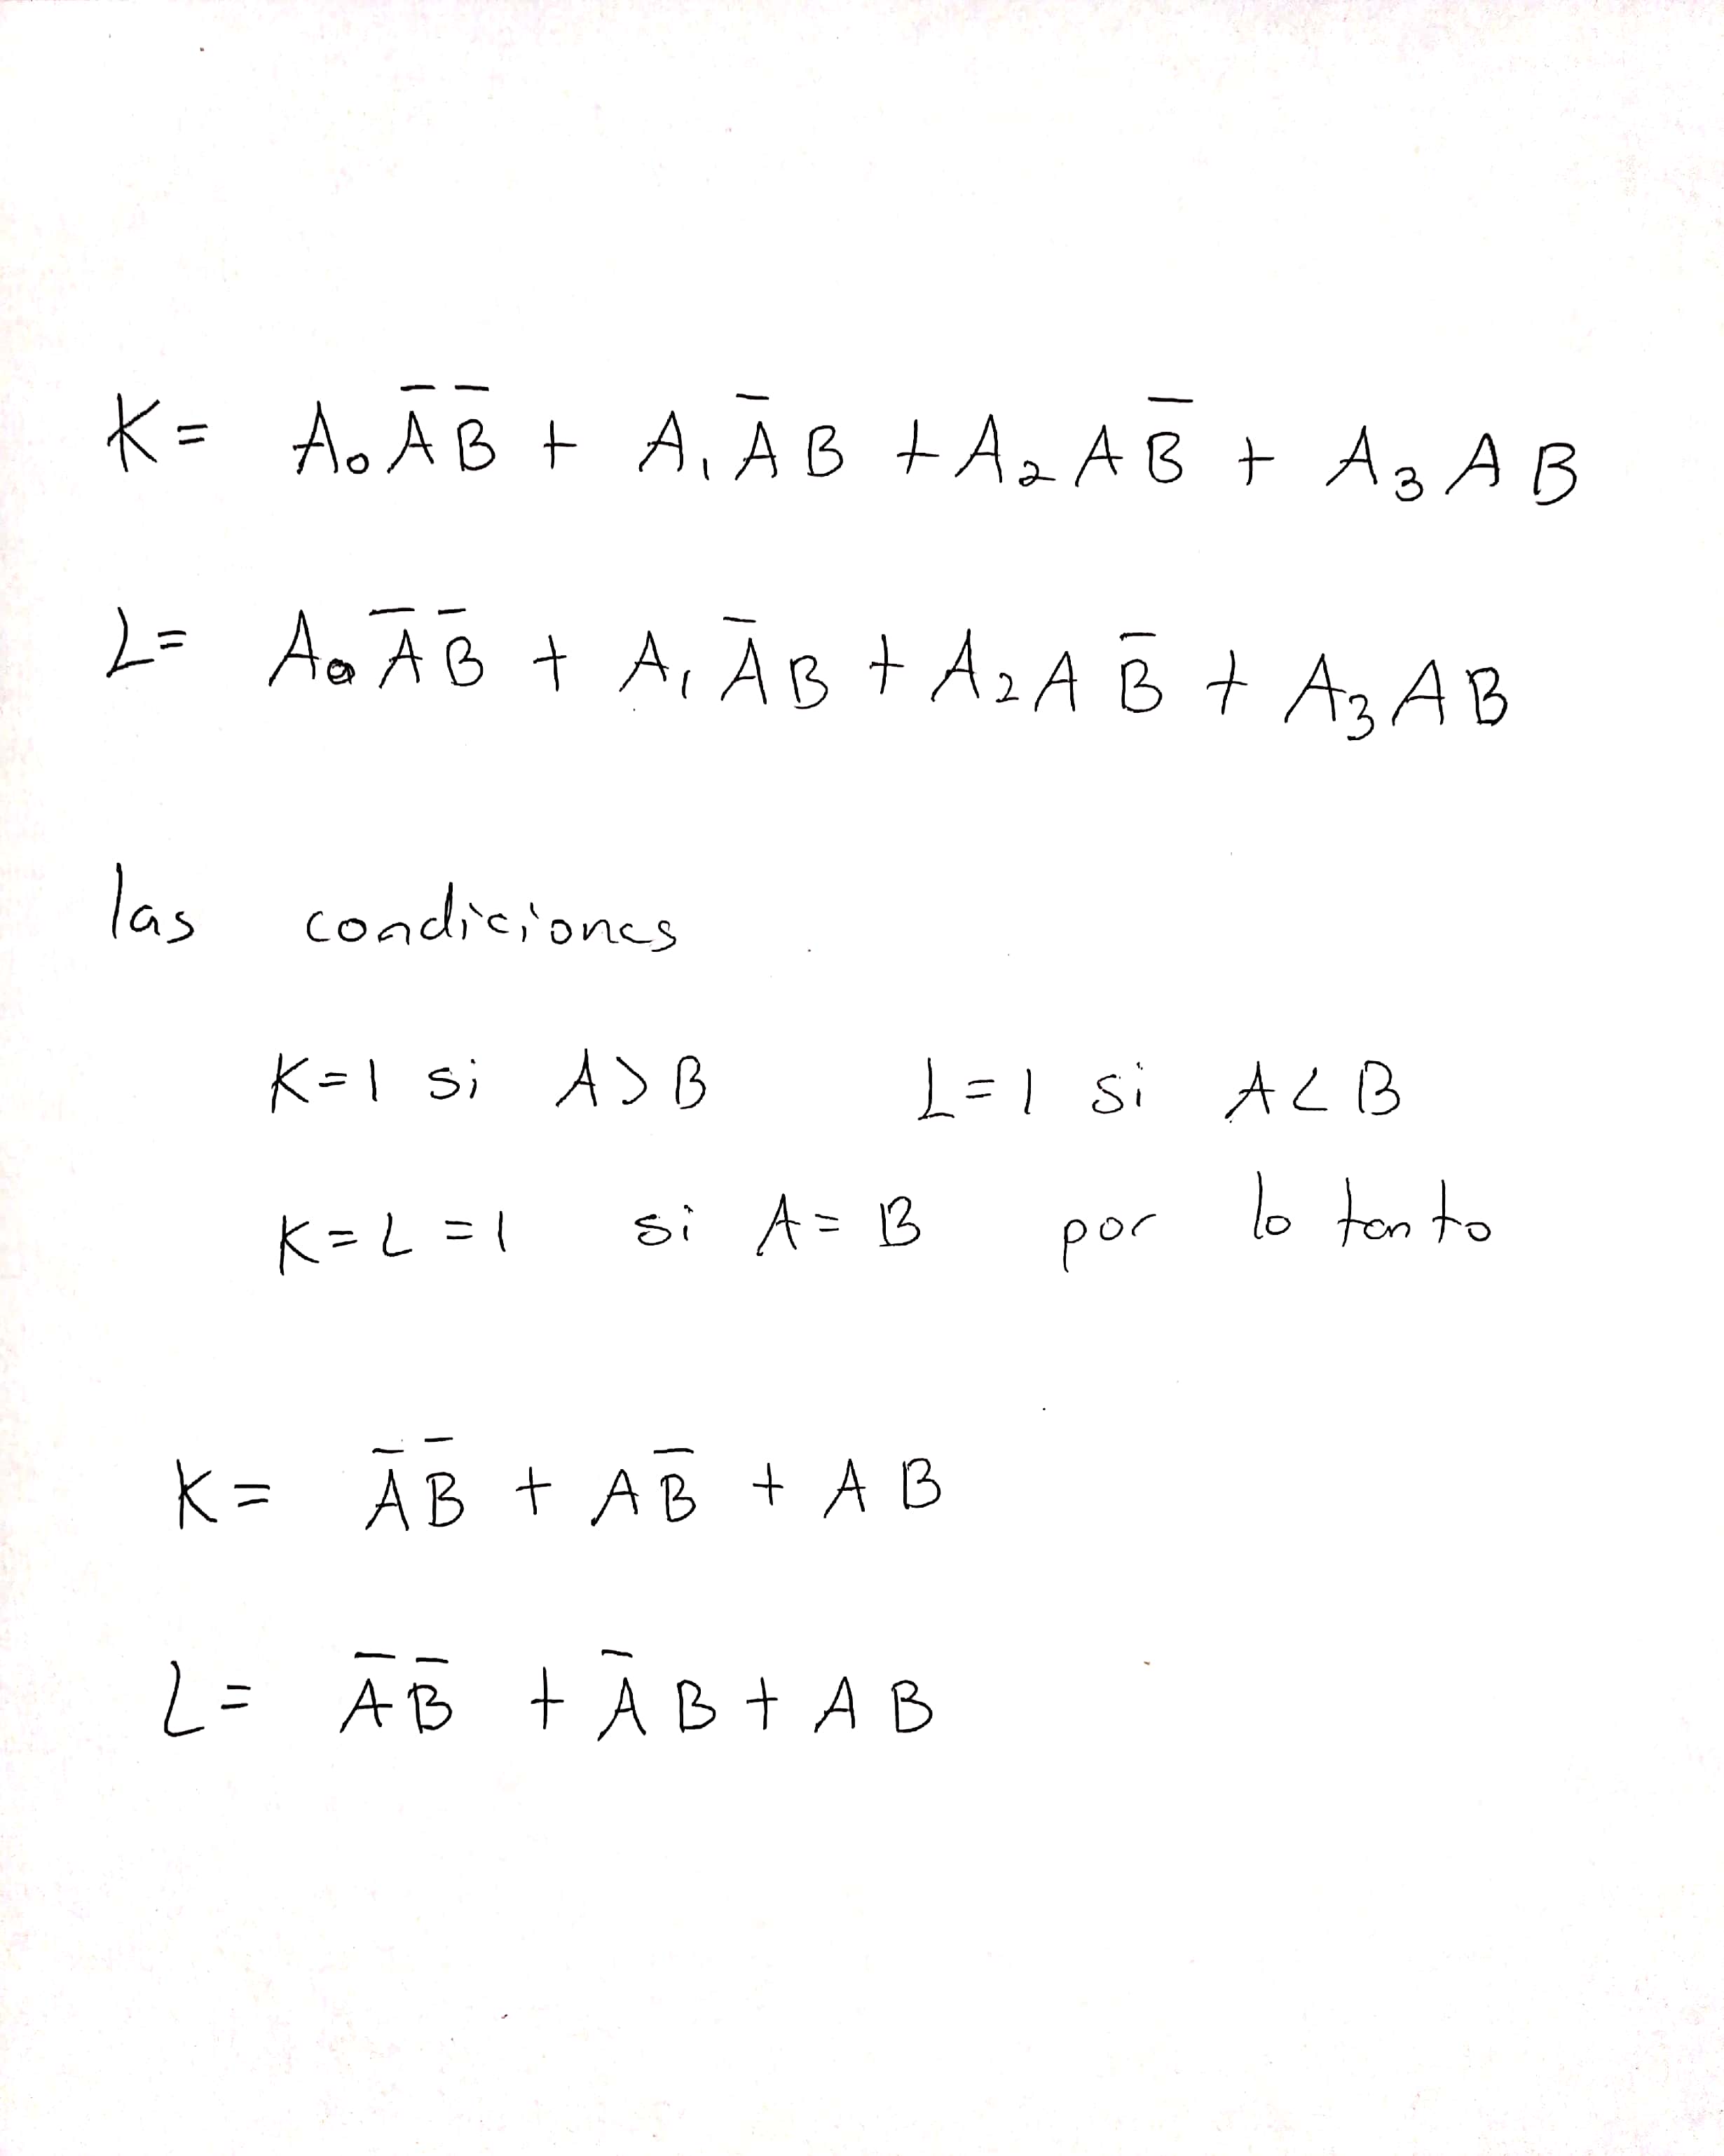 K= A₀ A̅ B̅ + A₁ A̅ B + A₂ A B̅ + A₃ A B
L= A₀ A̅ B̅ + A₁ A̅ B + A₂ A B̅ + A₃ A B
las condiciones
K=1 si A>B L=1 si A<B
K=L=1 si A=B por lo tanto
K= A̅ B̅ + A B̅ + A B
L= A̅ B̅ + A̅ B + A B